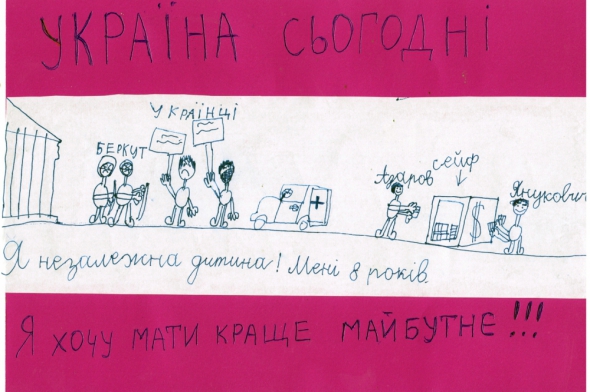 УКРАЇНА СЬОГОДНІ
УКРАЇНЦІ
БЕРКУТ
сейф
Азаров
Янукович
$
Я незалежна дитина! Мені 8 років.
Я ХОЧУ МАТИ КРАЩЕ МАЙБУТНЄ!!!